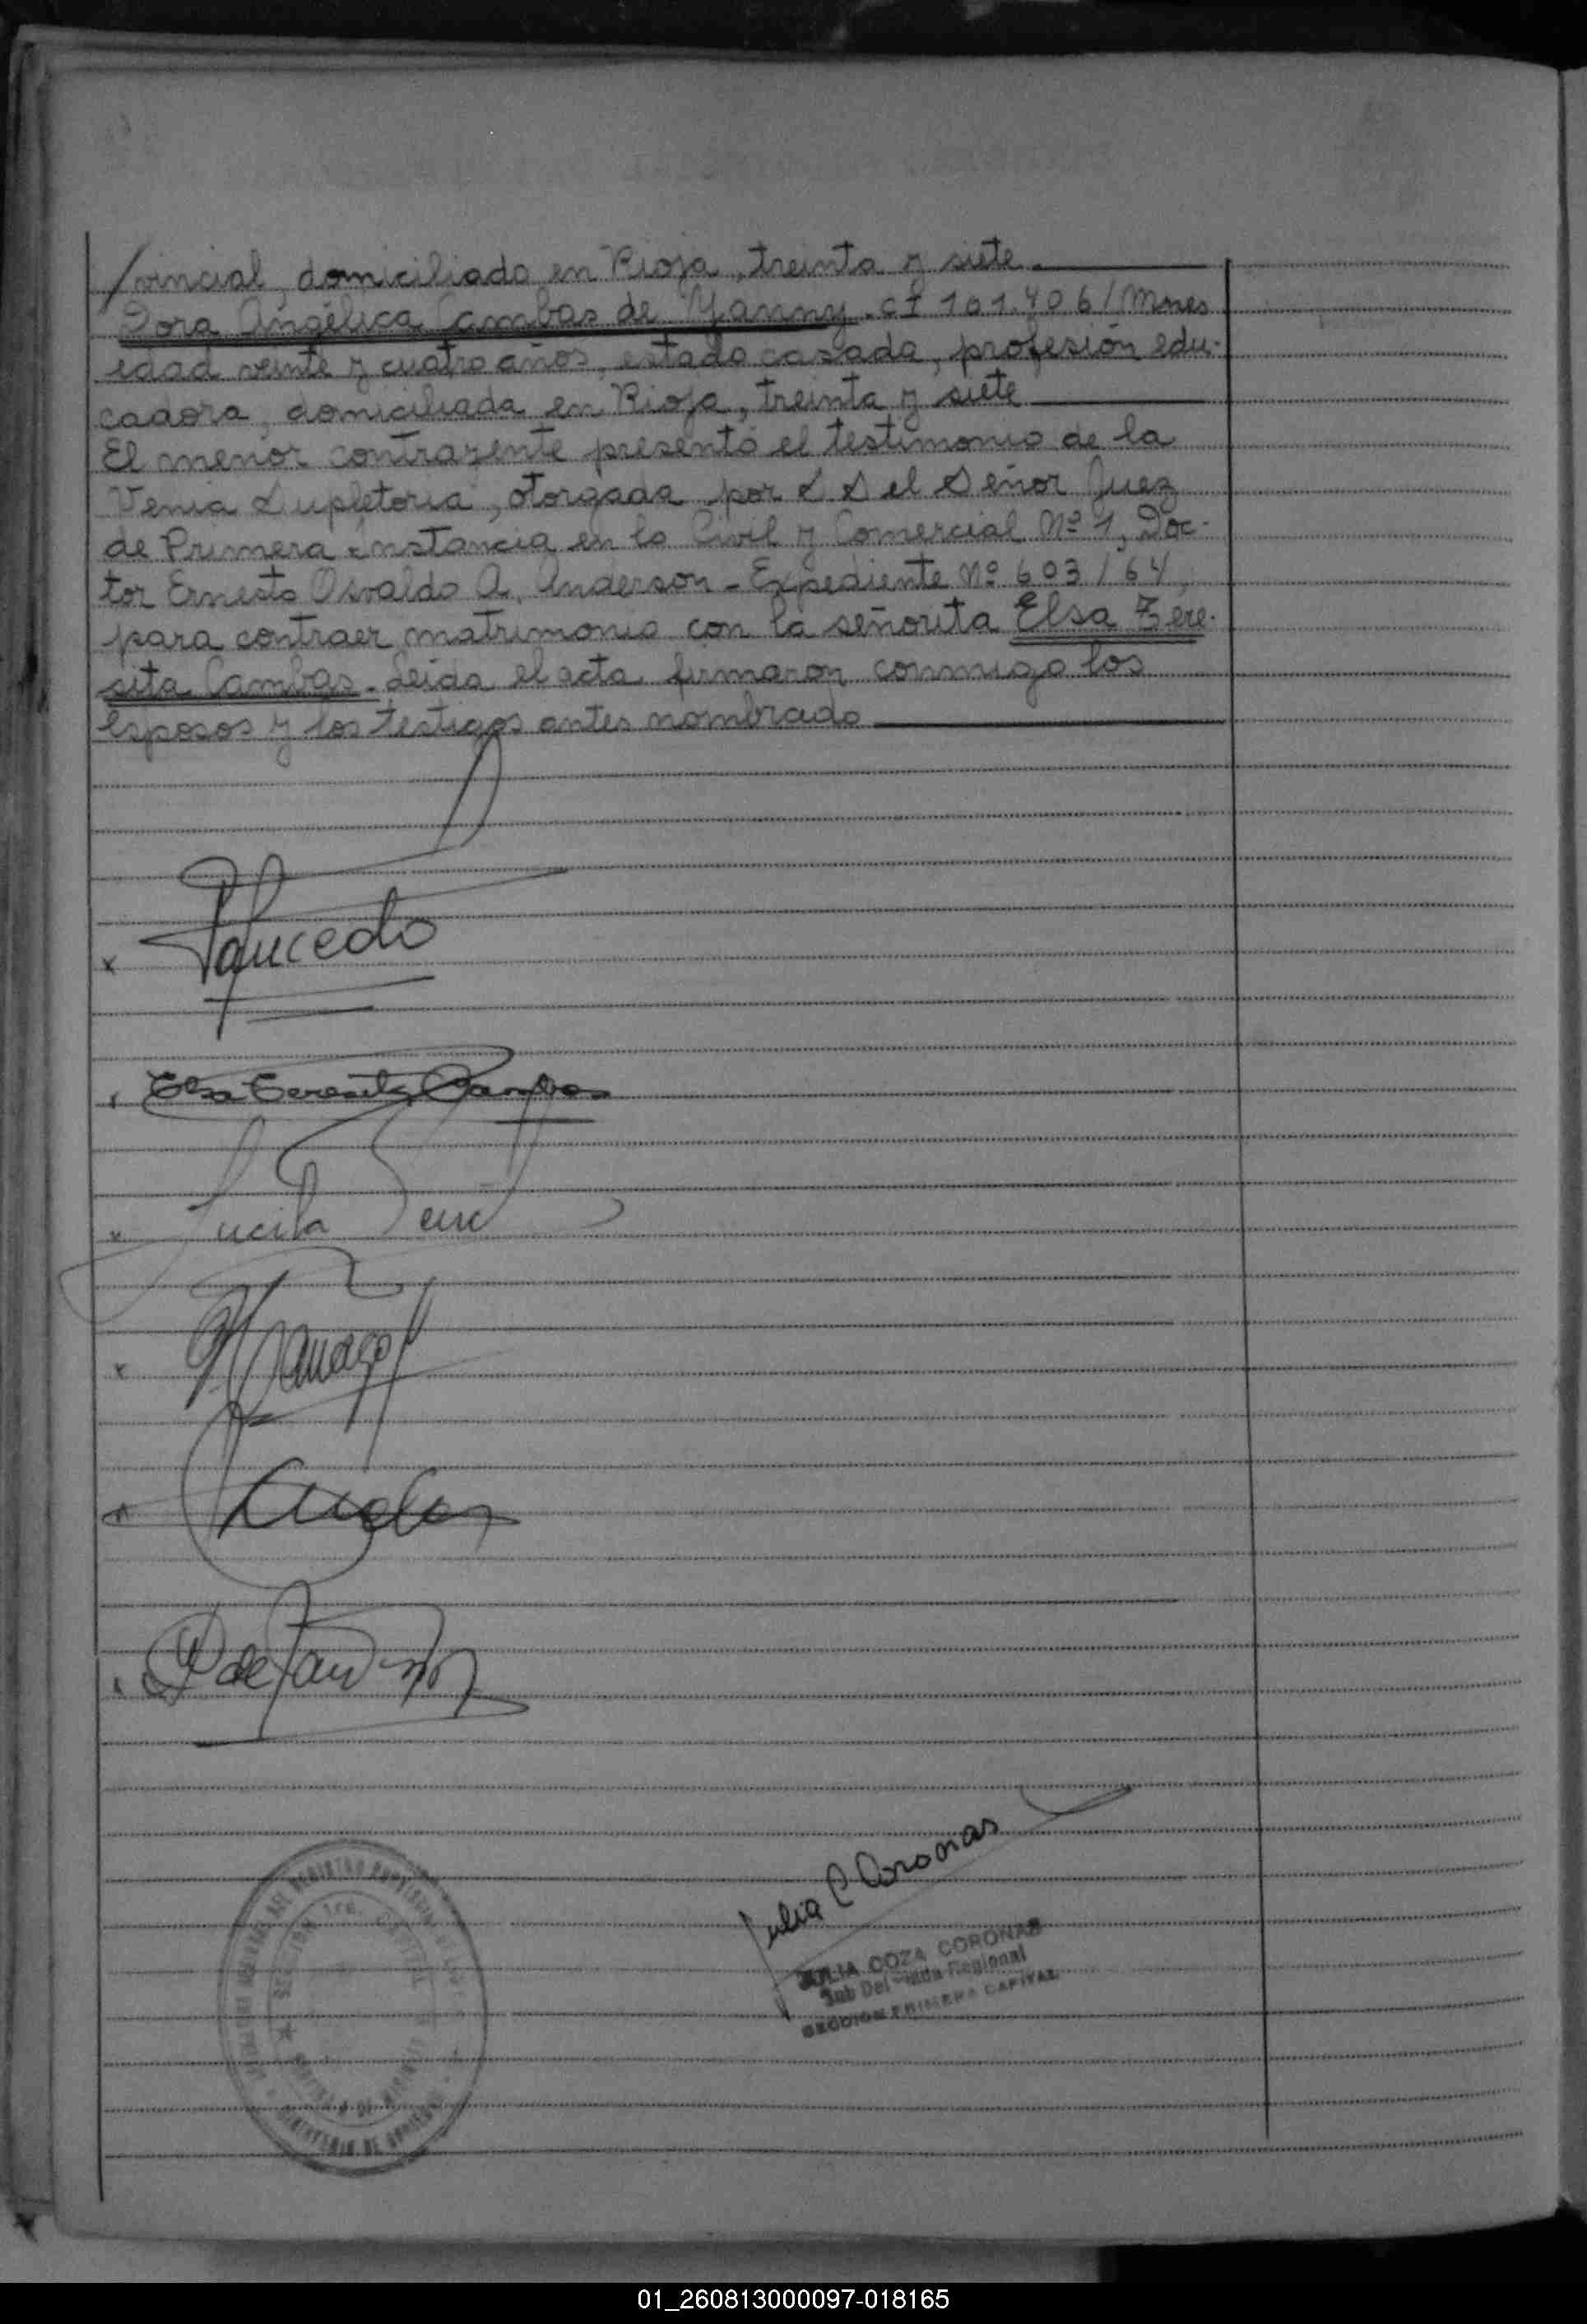 /vincial, domiciliado en Rioja, treinta y siete
Dora Angélica Cambas de Yanny. CI 101.406/Mnes
edad veinte y cuatro años, estado casada, profesión edu-
cadora, domiciliada en Rioja, treinta y siete
El menor contrayente presentó el testimonio de la
Venia Supletoria, otorgada por S S el Señor Juez
de Primera Instancia en lo Civil y Comercial Nº 1, Doc-
tor Ernesto Osvaldo A. Anderson - Expediente Nº 603/64,
para contraer matrimonio con la señorita Elsa Tere-
sita Cambas. Leída el acta firmaron conmigo los
esposos y los testigos antes nombrado
Elsa Teresita Cambas
Lucila
Julia C Coronas
JULIA COZA CORONAS
Regional
SECCION PRIMERA CAPITAL
01_260813000097-018165